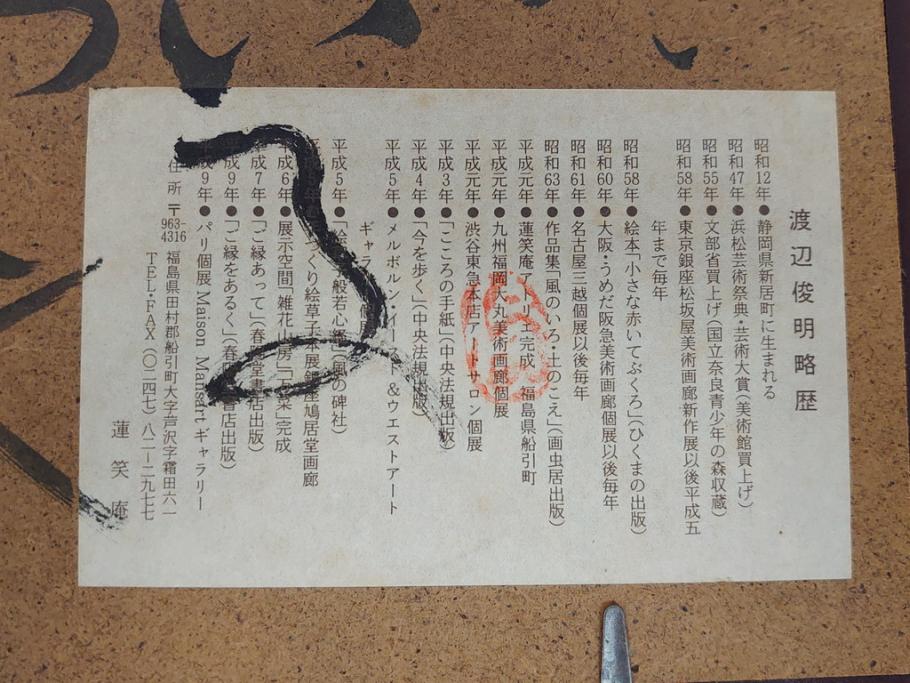 渡辺俊明略歴
昭和12年●静岡県新居町に生まれる
昭和47年●浜松芸術祭典・芸術大賞(美術館買上げ)
昭和55年●文部省買上げ(国立奈良青少年の森収蔵)
昭和58年●東京銀座松坂屋美術画廊新作展以後平成五
年まで毎年
昭和58年●絵本「小さな赤いてぶくろ」(ひくまの出版)
昭和60年●大阪・うめだ阪急美術画廊個展以後毎年
昭和61年●名古屋三越個展以後毎年
昭和63年●作品集「風のいろ・土のこえ」(画虫居出版)
平成元年●蓮笑庵アトリエ完成 福島県船引町
平成元年●九州福岡大丸美術画廊個展
平成元年●渋谷東急本店アートサロン個展
平成3年●「こころの手紙」(中央法規出版)
平成4年●「今を歩く」(中央法規出版)
平成5年●メルボルン・イースト&ウエストアート
ギャラ
平成5年●「絵 般若心経」(風の碑社)
づくり絵草子 展 座鳩居堂画廊
平成6年●展示空間「雑花 房」「 菜」完成
平成7年●「ご縁あって」(春 堂書店出版)
平成9年●「ご縁をあるく」(春 書店出版)
9年●パリ個展 Maison Mansartギャラリー
住所 〒963-4316 福島県田村郡船引町大字芦沢字霜田六一
TEL・FAX(〇二四七)八二―二九七七
蓮笑庵